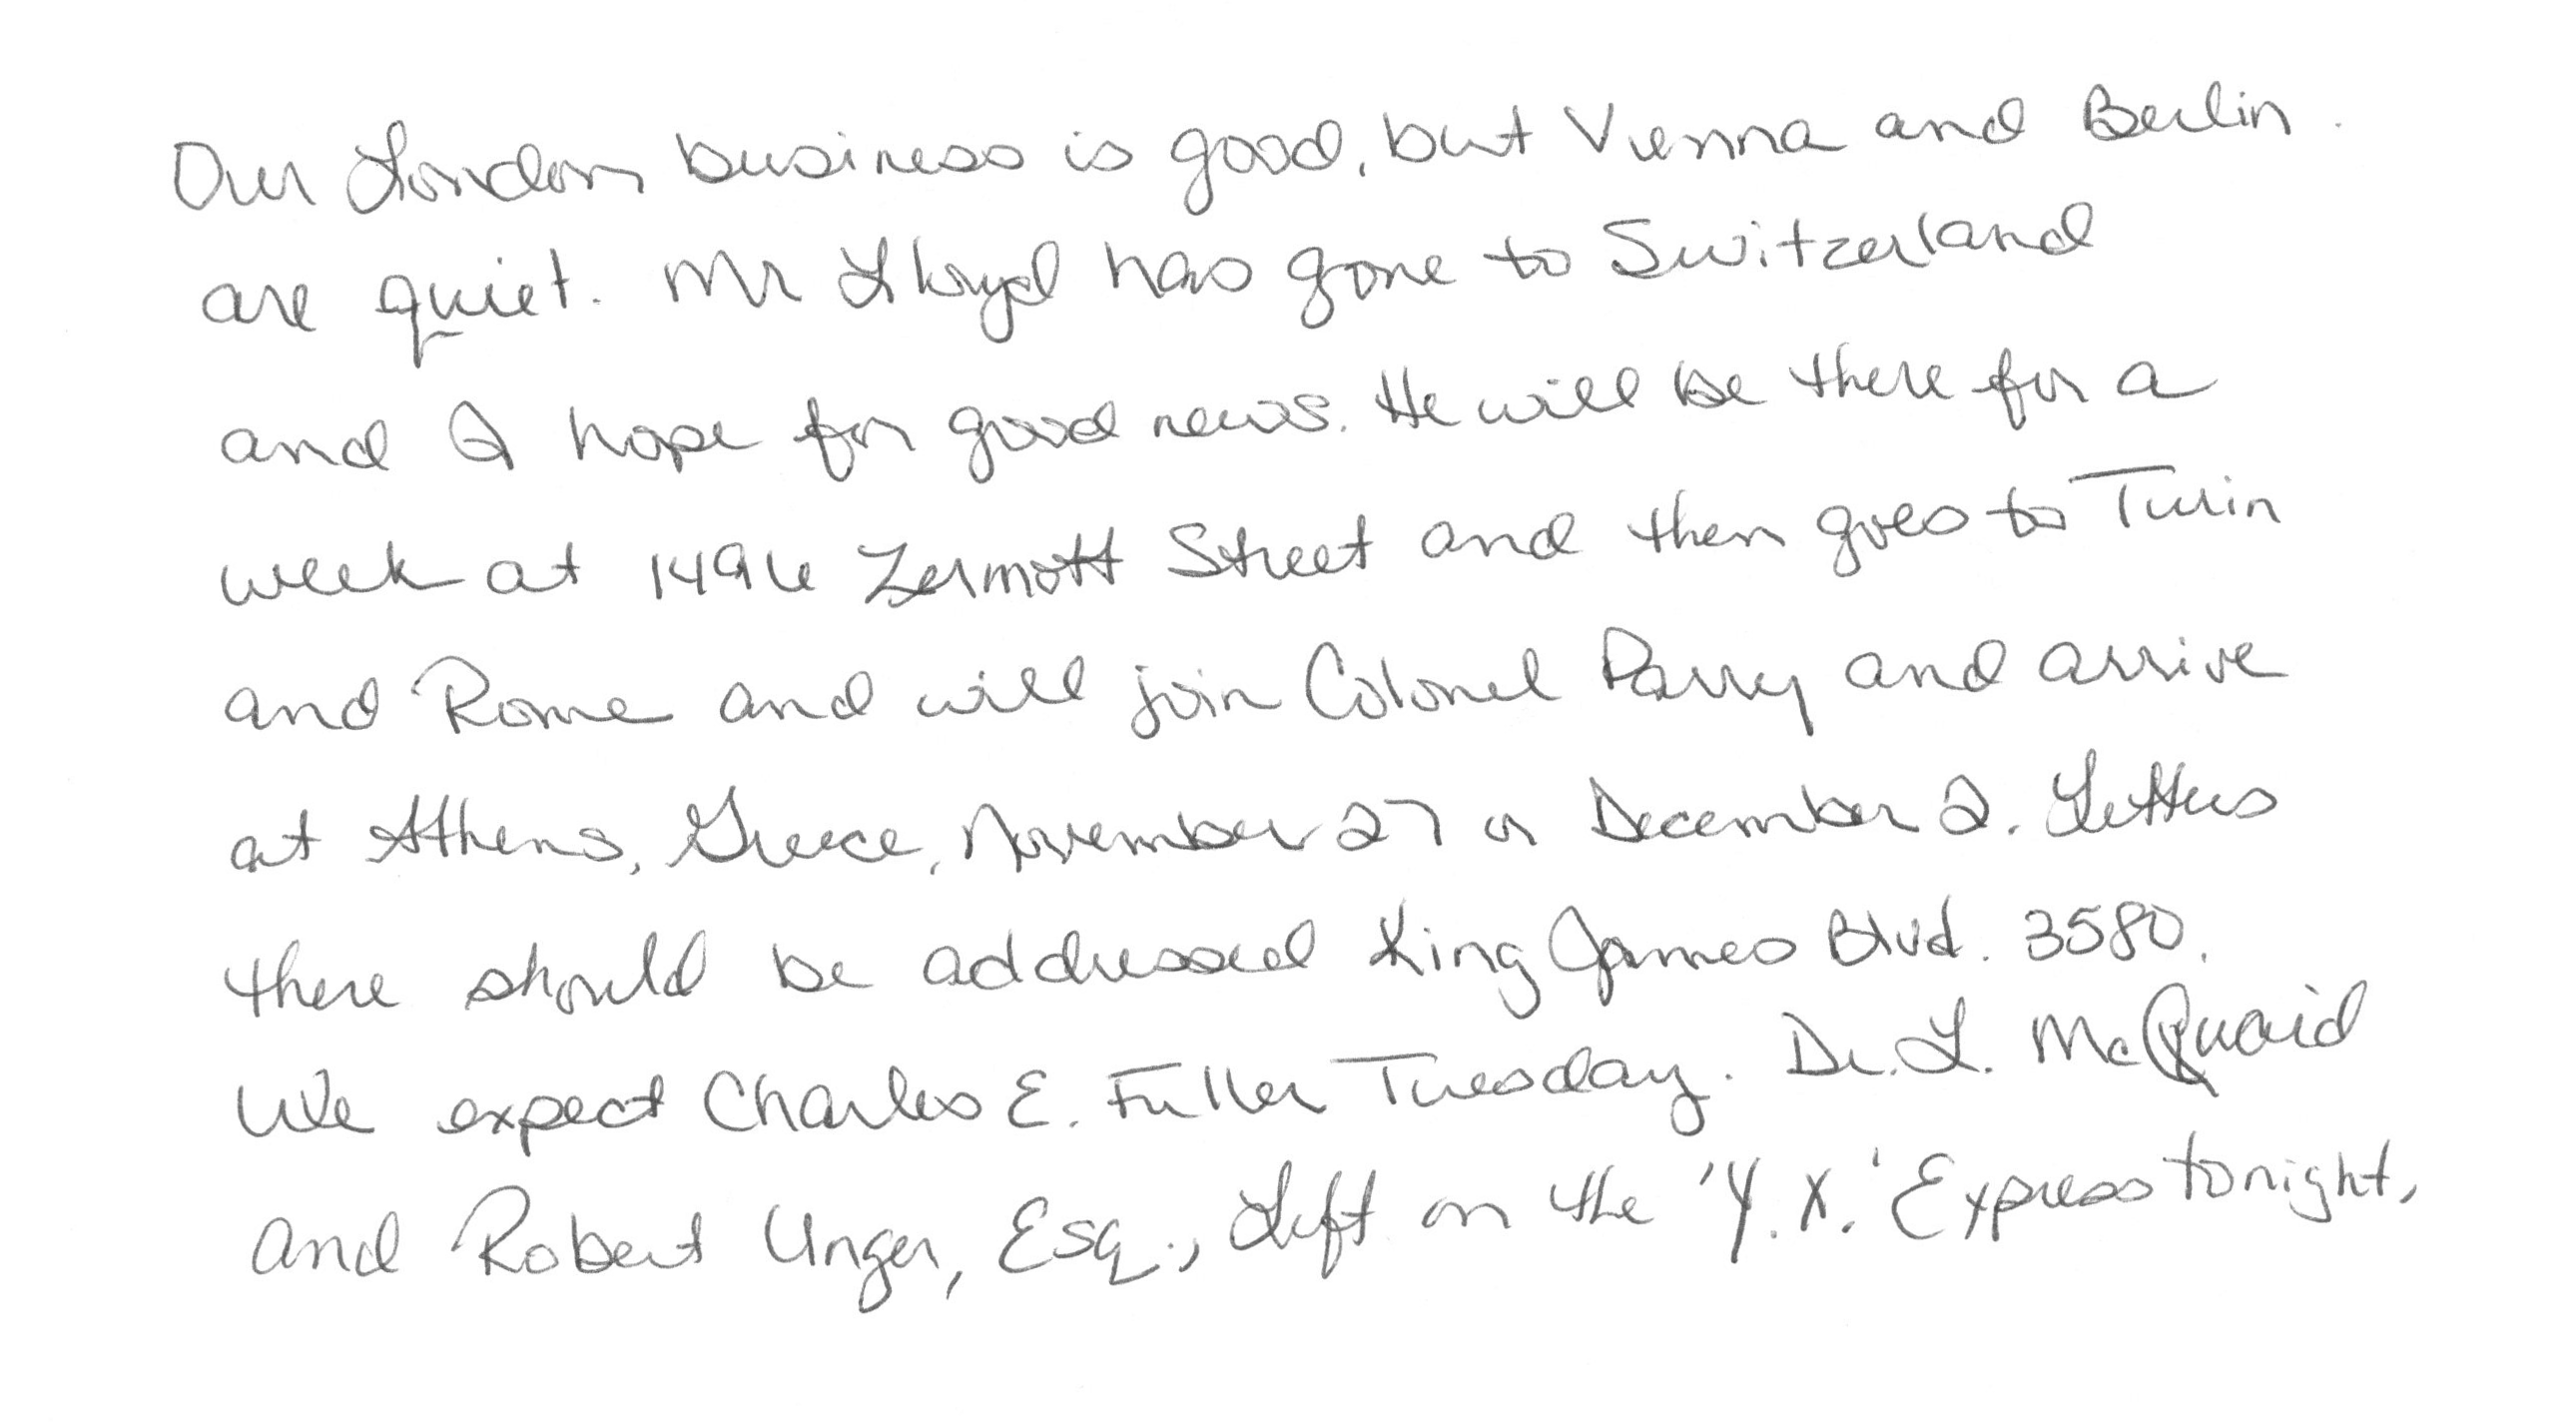 Our London business is good, but Vienna and Berlin
are quiet. Mr Lloyd has gone to Switzerland
and I hope for good news. He will be there for a
week at 1496 Zermott Street and then goes to Turin
and Rome and will join Colonel Parry and arrive
at Athens, Greece, November 27 or December 2. Letters
there should be addressed King James Blvd. 3580.
We expect Charles E. Fuller Tuesday. Dr. L. McQuaid
and Robert Unger, Esq., Left on the 'Y.X.' Express tonight,